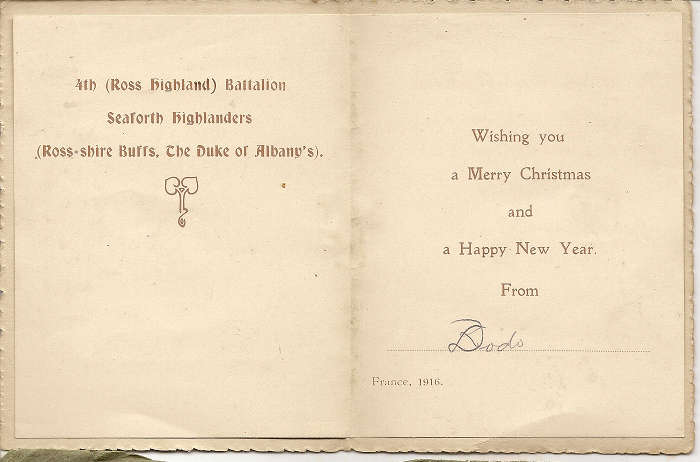 4th (Ross Highland) Battalion
Seaforth Highlanders
(Ross-shire Buffs, The Duke of Albany's).
Wishing you
a Merry Christmas
and
a Happy New Year.
From
Dodo
France, 1916.